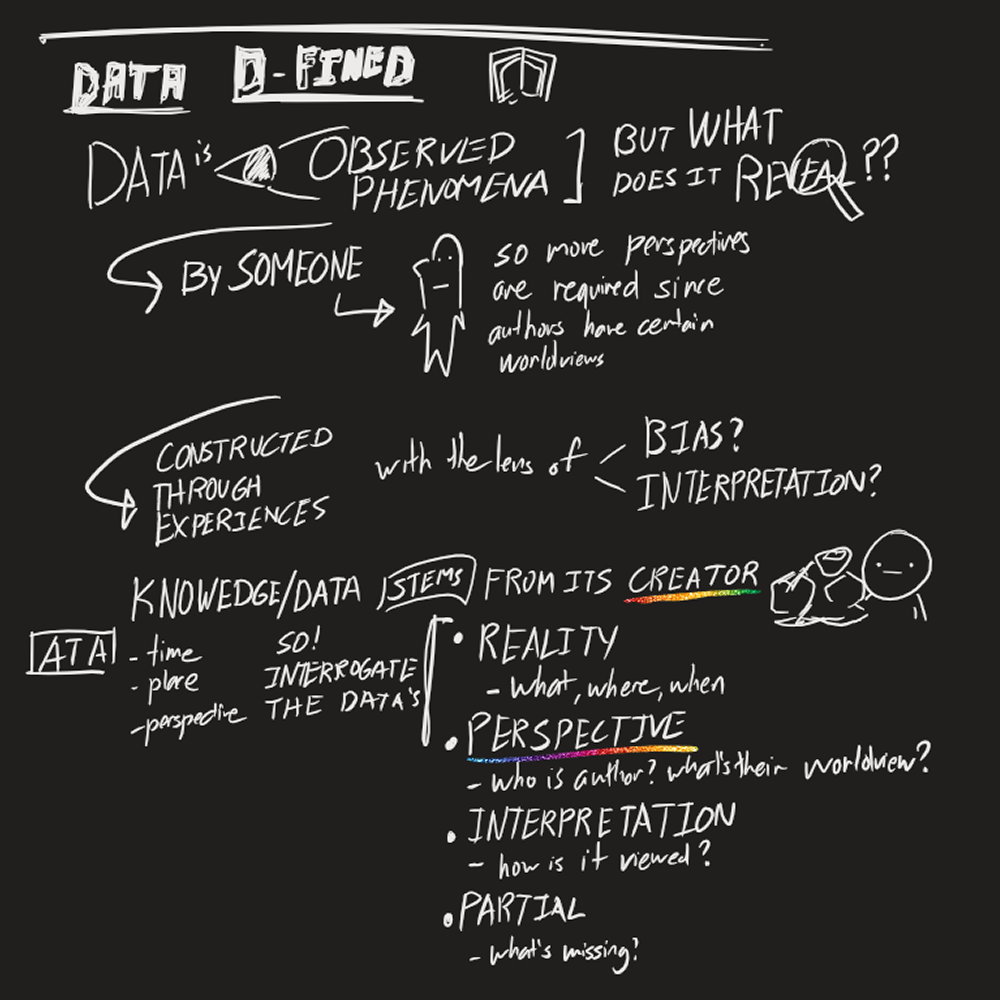 DATA D-FINED
DATA is OBSERVED
PHENOMENA
BUT WHAT
DOES IT REVEAL ??
BY SOMEONE
so more perspectives
are required since
authors have certain
worldviews
CONSTRUCTED
THROUGH
EXPERIENCES
with the lens of
BIAS?
INTERPRETATION?
KNOWEDGE/DATA STEMS FROM ITS CREATOR
ATA
- time
- place
- perspective
SO!
INTERROGATE
THE DATA'S
• REALITY
- what, where, when
• PERSPECTIVE
- who is author? what's their worldview?
• INTERPRETATION
- how is it viewed?
• PARTIAL
- what's missing?